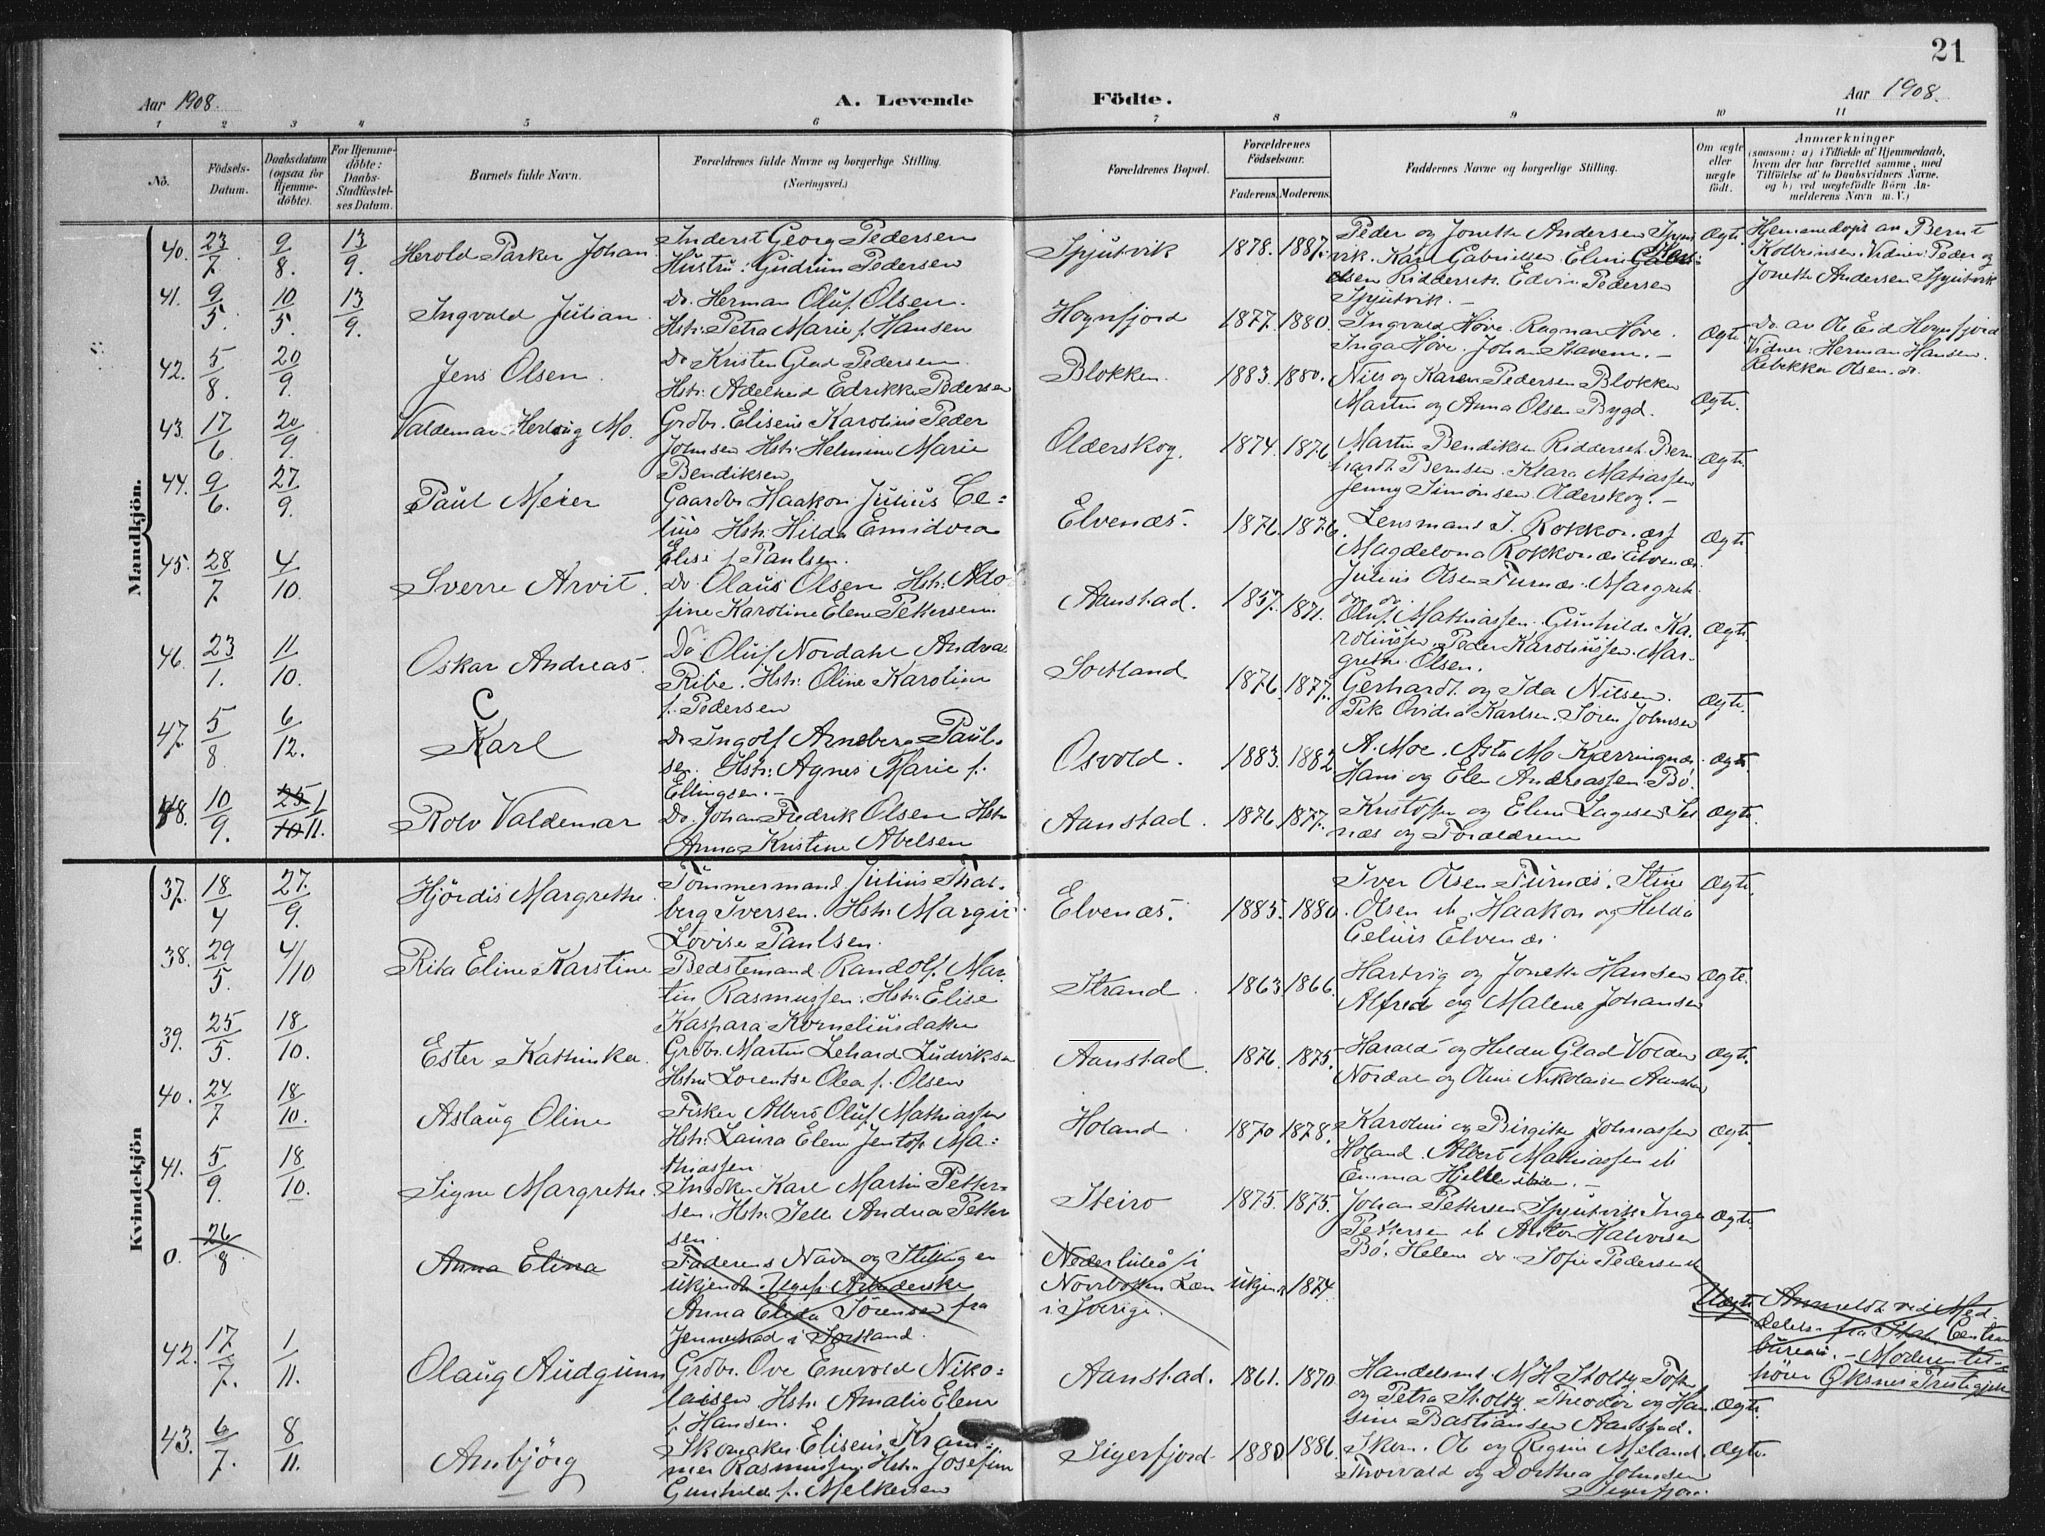 21
Aar 1908.
A. Levende
Födte.
Aar 1908.
1 2 3 4 5 6 7 8 9 10 11
No.
Födsels-
Datum.
Daabsdatum
(ogsaa for
Hjemme-
döbte).
For Hjemme-
döbte:
Daabs-
Stadfæstel-
ses Datum.
Barnets fulde Navn.
Forældrenes fulde Navne og borgerlige Stilling.
(Næringsvei.)
Forældrenes Bopæl.
Forældrenes
Födselsaar.
Faderens. Moderens.
Faddernes Navne og borgerlige Stilling.
Om ægte
eller
uægte
födt.
Anmærkninger
(saasom: a) i Tilfælde af Hjemmedaab,
hvem der har forrettet samme, med
Tilföielse af to Daabsvidners Navne.
og b) ved uægtefödte Börn An-
melderens Navn m. V.)
Mandkjön.
40. 23/7 9/8. 13/9. Herold Parker Johan
Inderst Georg Pedersen
Hustru: Gudrun Pedersen
Spjutvik 1878. 1887.
Peder og Jonette Andersen Spjut
vik. Karl Gabrielsen Elini
Ridderseth. Edvin Pedersen
Spjutvik. —
Ægte.
Hjemmedøpt av Bernt
Kolbeinsen. Vidner: Peder og
Jonette Andersen Spjutvik
41. 9/5. 10/5. 13/9. Ingvald Julian
Do. Herman Oluf Olsen.
Hstr. Petra Marie f. Hansen
Hognfjord 1877. 1880.
Ingvald Hove. Ragnar Hove.
Inga Hove. Johan Stavem. —
Ægte
Do. av Ole Eid Hognfjord
Vidner: Herman Hansen.
Rebekka Olsen. do.
42. 5/8. 20/9. Jens Olsen.
Do Kristen Glad Pedersen.
Hstr. Adelheid Edrikke Pedersen
Blokken. 1883. 1880.
Nils og Karen Pedersen Blokken
Martin og Anna Olsen Bygd.
Ægte.
43. 17/6 20/9. Valdemar Herlaug Mo.
Grdbr. Elisæus Karolius Peder
Johnsen Hstr. Helmine Marie
Bendiksen
Olderskog. 1874. 1876
Martin Bendiksen Ridderseth. Bern
hardt Berntsen. Klara Matiassen
Jenny Simonsen. Olderskog. —
Ægte.
44. 9/6. 27/9. Paul Meier
Gaardbr. Haakon Julius Ce-
lius Hstr. Hilda Emidora
Elise f. Paulsen.
Elvenæs. 1876. 1876.
Lensmand J. Rokkonæs
Magdelona Rokkonæs Elvenæs
Julius Olsen Furnæs. Margreth
do do.
Ægte.
45. 28/7 4/10. Sverre Arvit.
Do. Olaus Olsen Hstr. Ado-
fine Karoline Elene Pettersen.
Aanstad. 1857. 1871.
Oluf Mathiassen. Gunhilde Ka-
roliussen Peder Karoliussen. Mar-
grethe Olsen.
Ægte
46. 23/1. 11/10. Oskar Andreas.
Do Oluf Nordahl Andreas
Ribe. Hstr. Oline Karoline
f. Pedersen
Sortland 1876. 1877.
Gerhardt og Ida Nilsen.
Pik. Ovidia Karlsen. Søren Johnsen
Ægte.
47. 5/8 6/12. C Karl
Do Ingolf Arneberg Paul-
sen. Hstr. Agnes Marie f.
Ellingsen. —
Osvold. 1883. 1882
A. Moe. Asta Mo Kjerringnæs.
Hans og Elen Andreassen Bø.
Ægte.
48. 10/9. 25/10 1/11. Rolv Valdemar
Do. Johan Fredrik Olsen Hstr
Anna Kristine Abelsen
Aanstad. 1876 1877.
Kristoffer og Elen Lagesen Sel
næs og Forældrene
Ægte.
Kvindekjön
37. 18/4 27/9. Hjördis Margrethe
Tømmermand Julius Thal-
berg Iversen. Hstr. Margit
Lovise Paulsen.
Elvenæs. 1885. 1880.
Iver Olsen Furnæs. Stine
Olsen ib. Haakon og Hilda
Celius Elvenæs.
Ægte.
38. 29/5. 4/10 Rita Eline Karstine
Bedstemand Randolf Mar
tin Rasmussen. Hstr. Elise
Kaspara Kornelius datter
Strand. 1863 1866.
Hartvig og Jonette Hansen
Alfred og Malene Johansen
Ægte.
39. 25/5. 18/10. Ester Kathinka.
Grdbr. Martin Lehard Ludviksen
Hstru Lorentse Olea f. Olsen
Aanstad. 1876. 1875.
Harald og Helda Glad Volden
Nordal og Oline Nikolaisen Aanstad
Ægte.
40. 24/7 18/10. Aslaug Oline
Fisker Albert Oluf Mathiassen
Hstr. Laura Elene Jentof Ma-
thiassen
Holand. 1870 1878.
Karolius og Birgitte Johnassen
Holand. Albert Mathiassen ib
Emma Hjelle ibid. —
Ægte.
41. 5/9. 18/10. Signe Margrethe.
Indker Karl Martin Petter-
sen. Hstr. Jelle Andrea Petter
sen.
Steiro 1875. 1875.
Johan Pettersen Spjutvik. Inga
Pettersen ib Anton Halvorsen
Bø. Helene do. Sofie Pedersen ib
Ægte
0. 26/8 Anna Elina
Faderens Navn og Stilling er
ukjendt. Ugift Arbeiderske
Anna Elida Sørensen fra
Jennestad i Sortland.
Nederluleå i
Norrbotten Læn
i Sverige.
ukjent 1874.
Uægte
Anmeldt ved Med-
delelse fra Stat. Central
bureau. — Moderen til-
hører Øksnes Prestegjeld
42. 17/7. 1/11. Olaug Audgunn
Grdbr. Ove Enevold Niko-
laisen Hstr. Amalie Elene
f. Hansen.
Aanstad. 1861. 1870
Handelsmd. M H Stoltz Toft
og Petra Stoltz. Theodor og Han
sine Bastiansen Aanstad.
Ægte.
43. 6/7. 8/11. Anbjörg
Skomaker Elisæus Kram-
mer Rasmussen. Hstr. Josefine
Gunhilde f. Melkersen
Sigerfjord 1880. 1886.
Skom. Ol og Regine Meland.
Thorvald og Dorthea Johnsen
Sigerfjord.
Ægte.